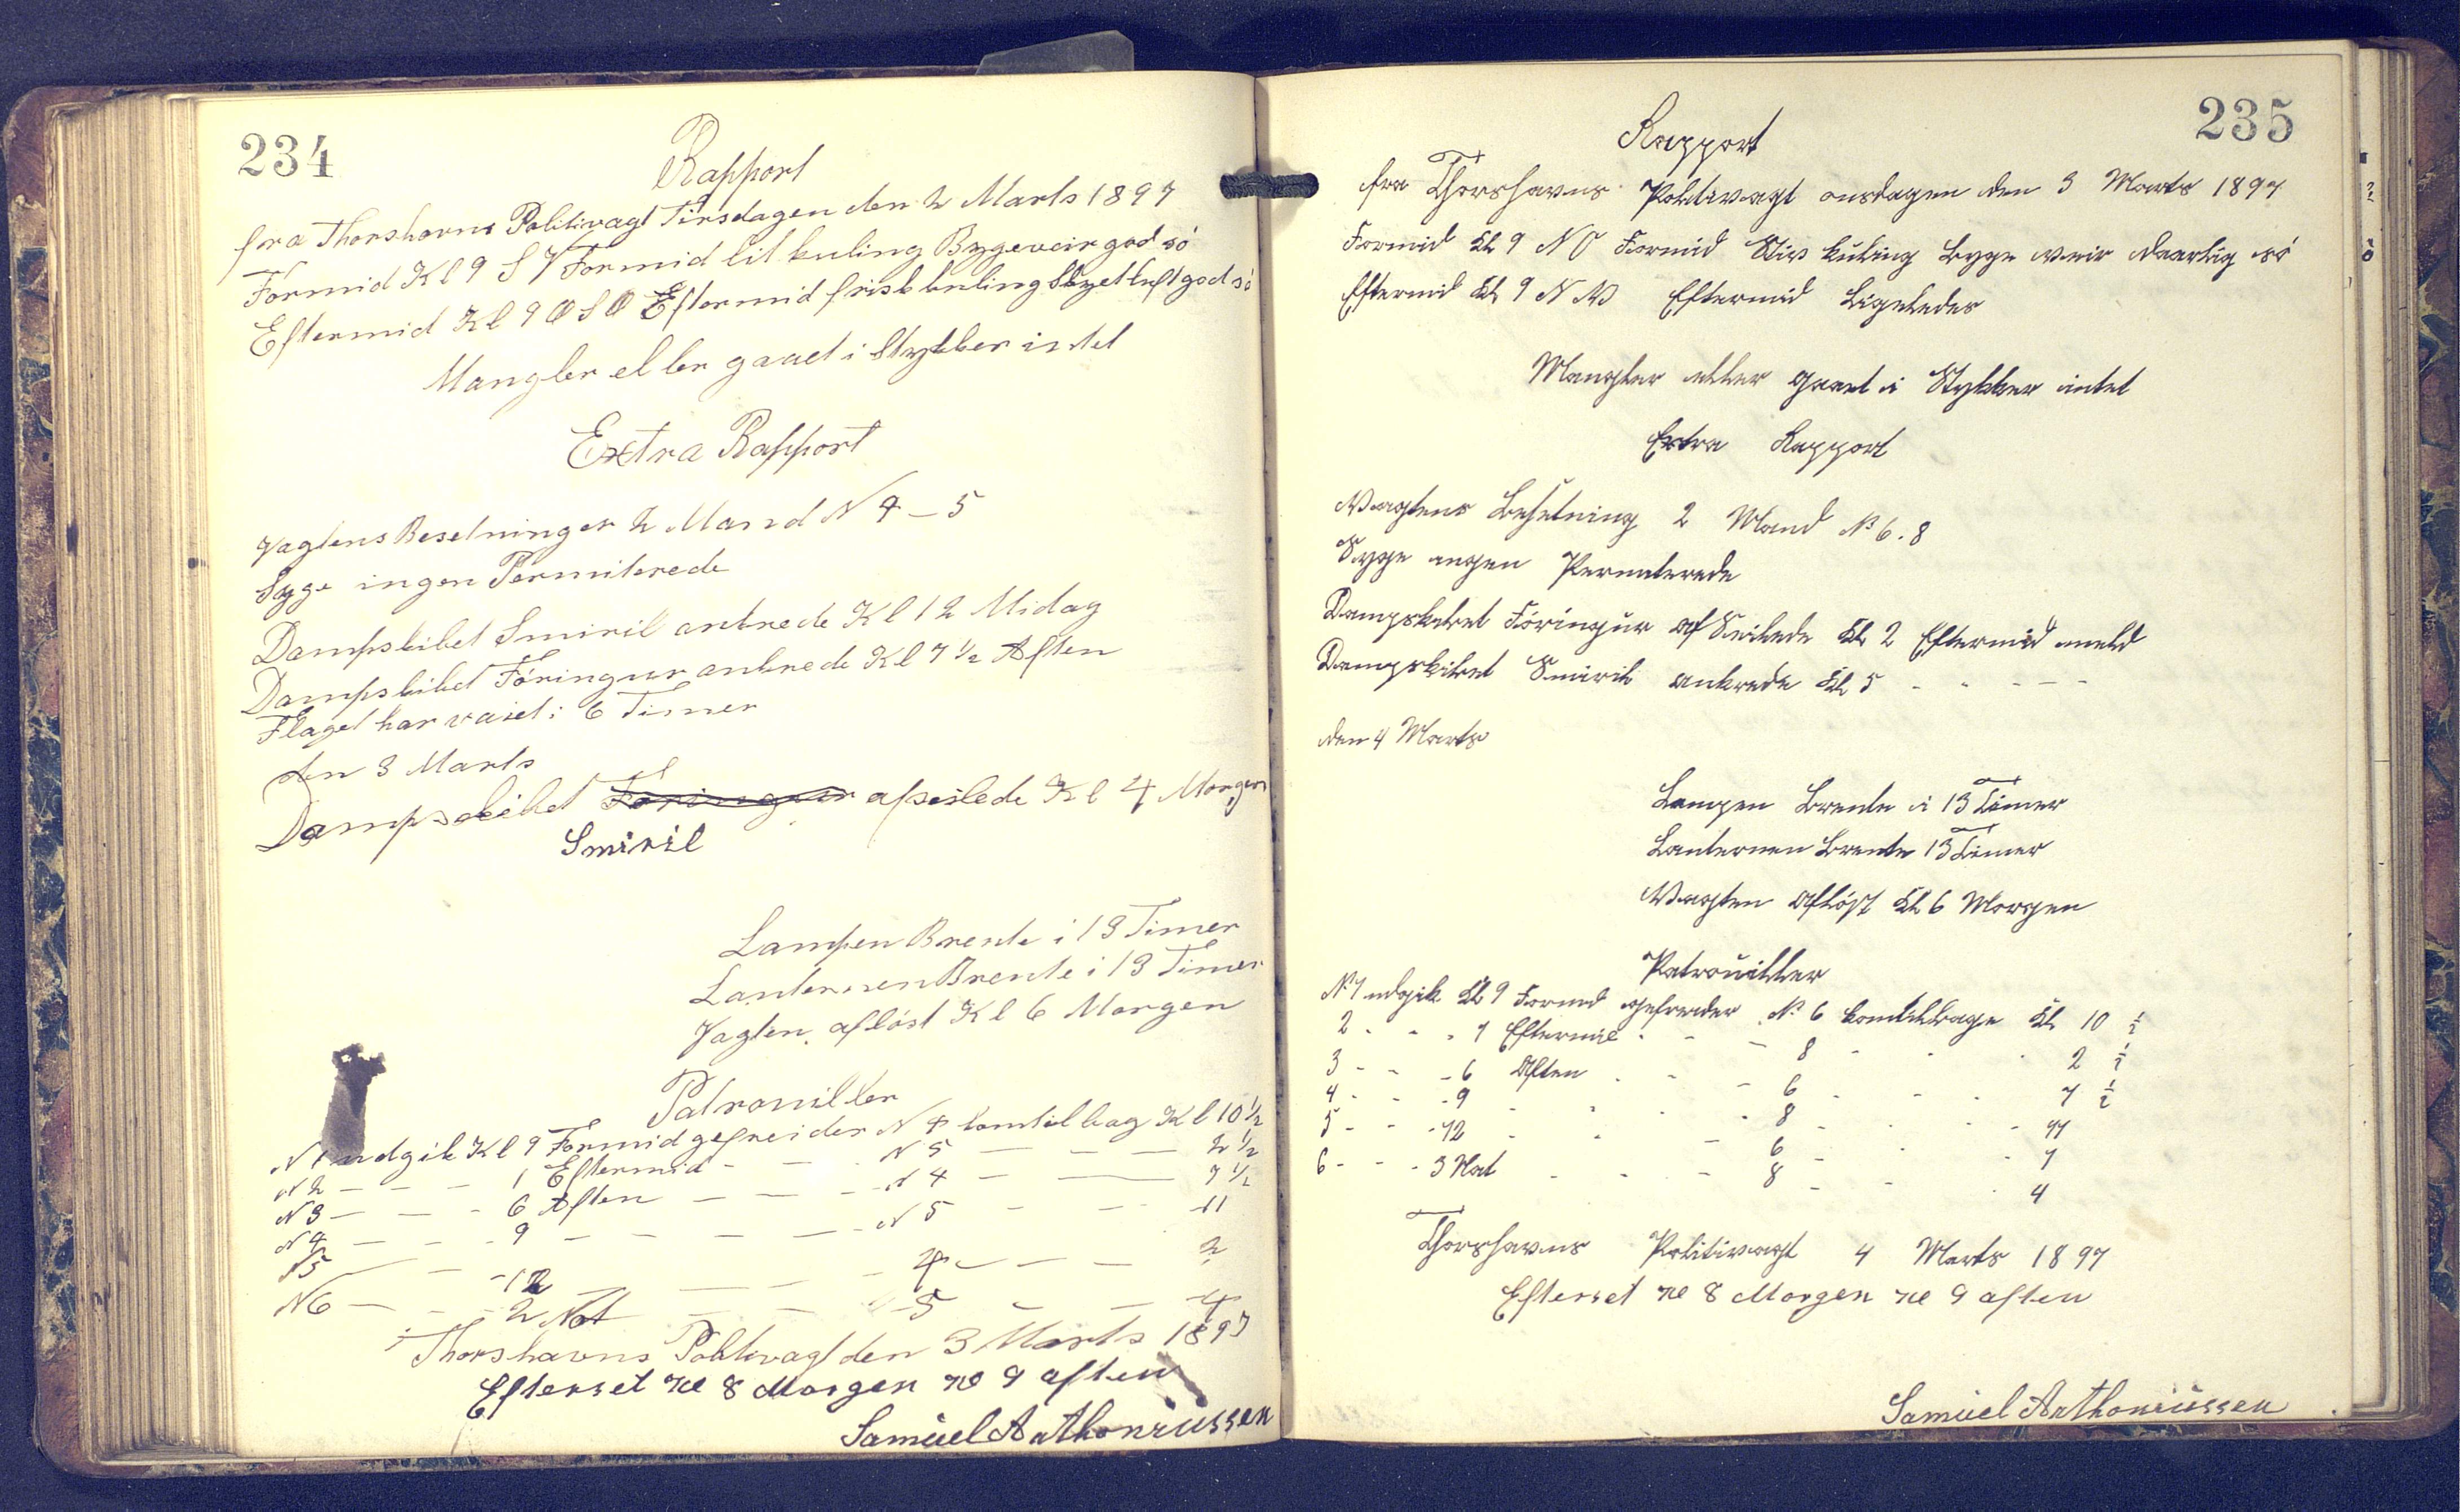 234
Rapport
fra Thorshavns Politivagt Tirsdagen den 2 Marts 1897
Formid Kl 9 S V Formid lit kuling Bygeveir god só
Eftermid Kl 9 O S O Eftermid frisk kuling Skyet luft god só
Mangler eller gaaet i Stykker intet
Extra Rapport
Vagtens Besetninger 2 Mand N 4 - 5
Syge ingen Permiterede
Dampskibet Smiril ankrede Kl 12 Midag
Dampskibet Fóringur ankrede Kl 7 1/2 Aften
Flaget har vaiet i 6 Timer
den 3 Marts
Dampskibet Fóringur afseilede Kl 4 Morgen
Smiril
Lampen Brente i 13 Timer
Lanternen Brente i 13 Timer
Vagten aflóst Kl 6 Morgen
Patrouiller
N 1 udgik Kl 9 Formid gefreider N 4 komtilbag Kl 10 1/2
N 2 - - - 1 Eftermid - - N 5 - - - 2 1/2
N 3 - - - 6 Aften - - - N 4 - - 7 1/2
N 4 - - - 9 - - - - N 5 - - 11
N 5 - - 12 - - - 4 - - - 2
N 6 - - - 2 Nat - - - 5 - - - 4
Thorshavns Politivagt den 3 Marts 1897
Efterset Kl 8 Morgen Kl 9 aften
Samúel Anthoniussen
235
Rapport
fra Thorshavns Politivagt onsdagen den 3 Marts 1897
Formid Kl 9 N O Formid Stiv kuling byge veir daarlig só
Eftermid Kl 9 N W Eftermid Ligeledes
Mangler eller gaaet i Stykker intet
Extra Rapport
Wagtens Besetning 2 Mand No 6. 8
Syge ingen Permiterede
Dampskibet Fóringur af Seilede Kl 2 Eftermid
Dampskibet Smiril ankrede Kl 5 - - - - -
den 4 Marts
Lampen Brente i 13 Timer
Lanternen Brente 13 Timer
Wagten aflóst Kl 6 Morgen
Patrouiller
No 1 udgik Kl 9 Formid gefreider No 6 komtilbage Kl 10 1/2
2 - - - 1 Eftermid - - - 8 - - - 2 1/2
3 - - - 6 Aften - - - 6 - - - 7 1/2
4 - - - 9 - - - - 8 - - - 11
5 - - - 12 - - - 6 - - - 1
6 - - - 3 Nat - - - 8 - - - 4
Thorshavns Politivagt 4 Marts 1897
Efterset Kl 8 Morgen Kl 9 aften
Samúel Anthoniússen